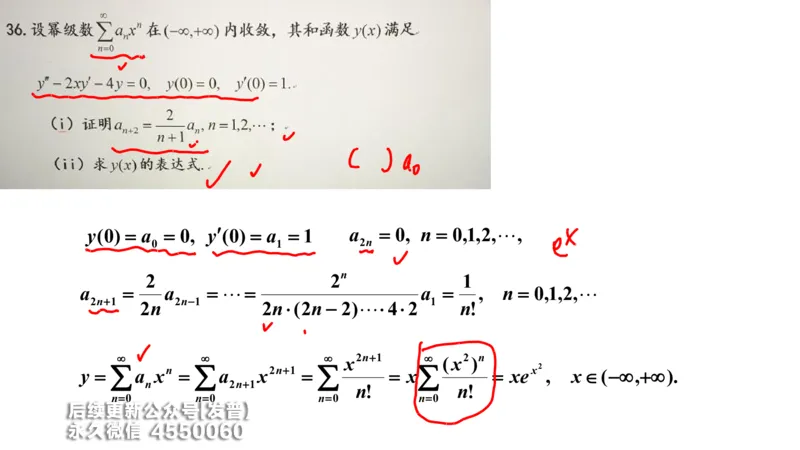 36. 设幂级数 $\sum_{n=0}^{\infty} a_n x^n$ 在 (−∞,+∞) 内收敛，其和函数 y(x) 满足
y″ − 2xy′ − 4y = 0, y(0) = 0, y′(0) = 1.
(i) 证明 $a_{n+2} = \frac{2}{n+1} a_n$, n = 1,2,⋯;
(ii) 求 y(x) 的表达式.
( ) a₀
y(0) = a₀ = 0, y′(0) = a₁ = 1 $a_{2n}$ = 0, n = 0,1,2,⋯,
eˣ
$a_{2n+1} = \frac{2}{2n} a_{2n-1} = \cdots = \frac{2^n}{2n \cdot (2n-2) \cdots 4 \cdot 2} a_1 = \frac{1}{n!}$, n = 0,1,2,⋯
$y = \sum_{n=0}^{\infty} a_n x^n = \sum_{n=0}^{\infty} a_{2n+1} x^{2n+1} = \sum_{n=0}^{\infty} \frac{x^{2n+1}}{n!} = x \sum_{n=0}^{\infty} \frac{(x^2)^n}{n!} = xe^{x^2}$, x ∈ (−∞,+∞).
后续更新公众号[发普]
永久微信 4550060